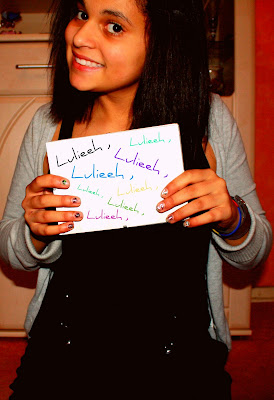 Lulieeh, Lulieeh,
Lulieeh,
Lulieeh,
Lulieeh, Lulieeh,
Lulieeh,
Lulieeh,